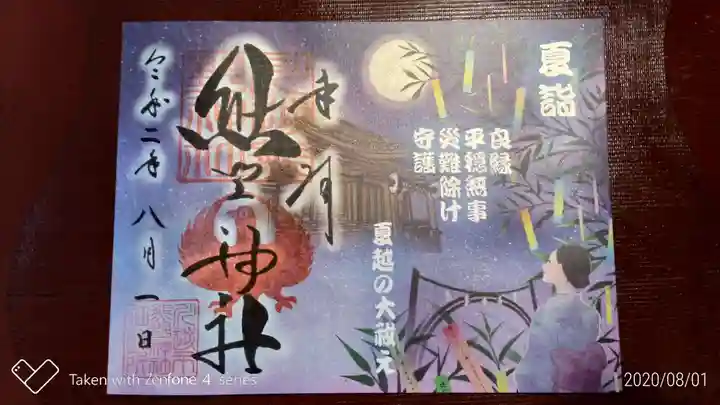 夏詣
良縁
平穏無事
災難除け
守護
夏越の大祓え
奉拝
熊野神社
令和二年八月一日
Taken with Zenfone 4 series
2020/08/01